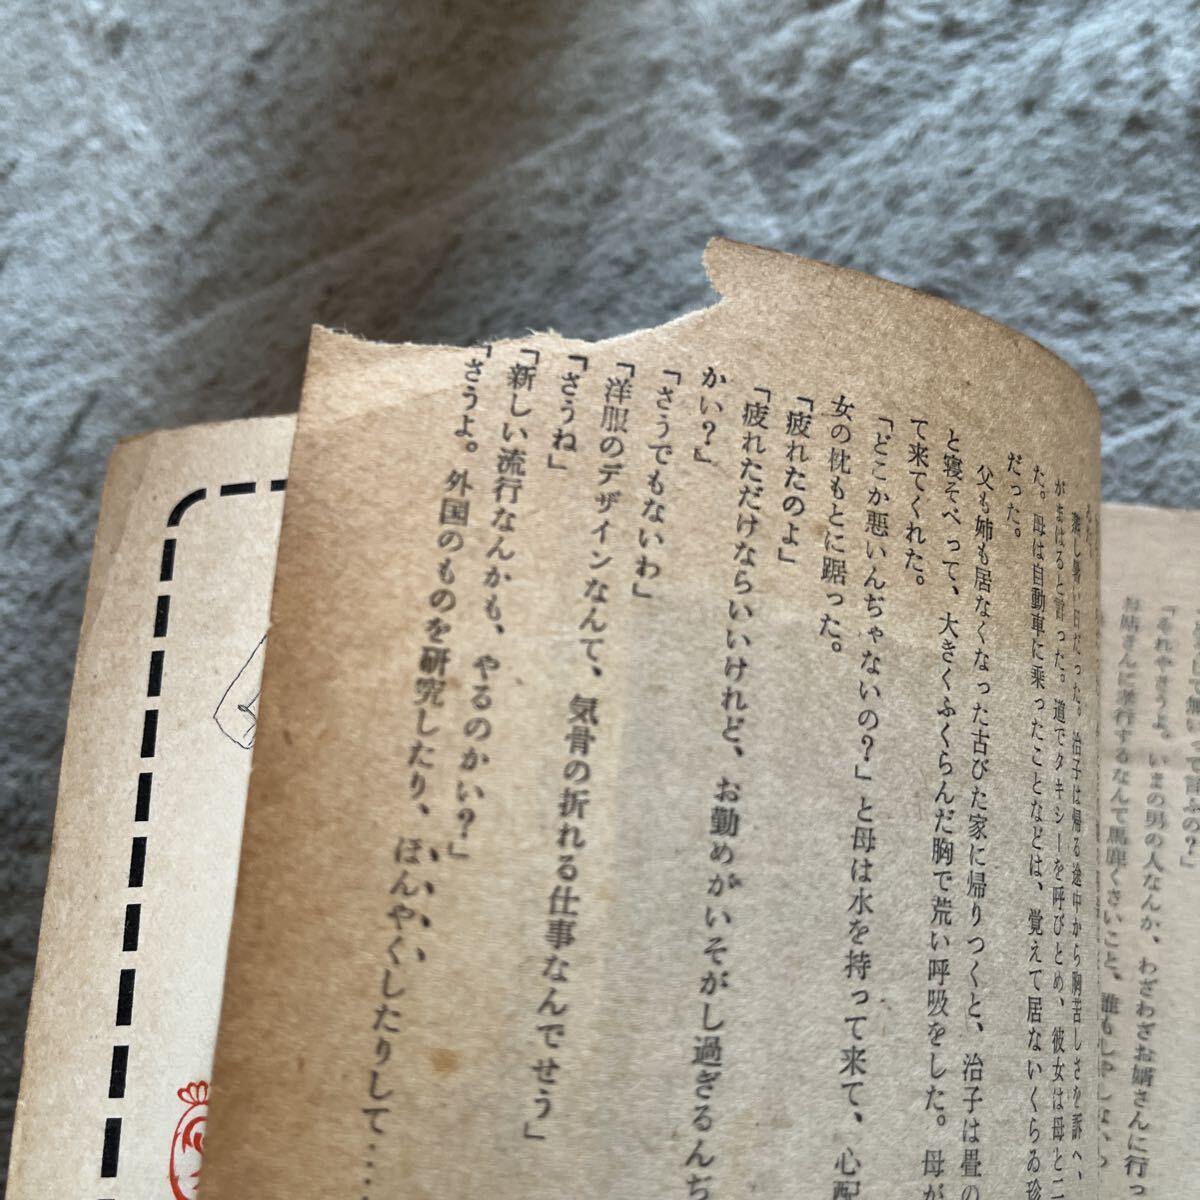 無いで言ふの？」
「それやさうよ。いまの男の人なんか、わざわざお婿さんに行っ
お姑さんに孝行するなんて馬鹿くさいこと、誰もしやしない
蒸し暑い日だった。治子は帰る途中から胸苦しさを訴へ、
がまはると言った。道でタキシーを呼びとめ、彼女は母と二
た。母は自動車に乗ったことなどは、覚えて居ないくらゐ珍
だった。
父も姉も居なくなった古びた家に帰りつくと、治子は畳の
と寝そべって、大きくふくらんだ胸で荒い呼吸をした。母が
て来てくれた。
「どこか悪いんぢゃないの？」と母は水を持って来て、心配
女の枕もとに踞った。
「疲れたのよ」
「疲れただけならいいけれど、お勤めがいそがし過ぎるんぢ
かい？」
「さうでもないわ」
「洋服のデザインなんて、気骨の折れる仕事なんでせう」
「さうね」
「新しい流行なんかも、やるのかい？」
「さうよ。外国のものを研究したり、ほんやくしたりして‥‥